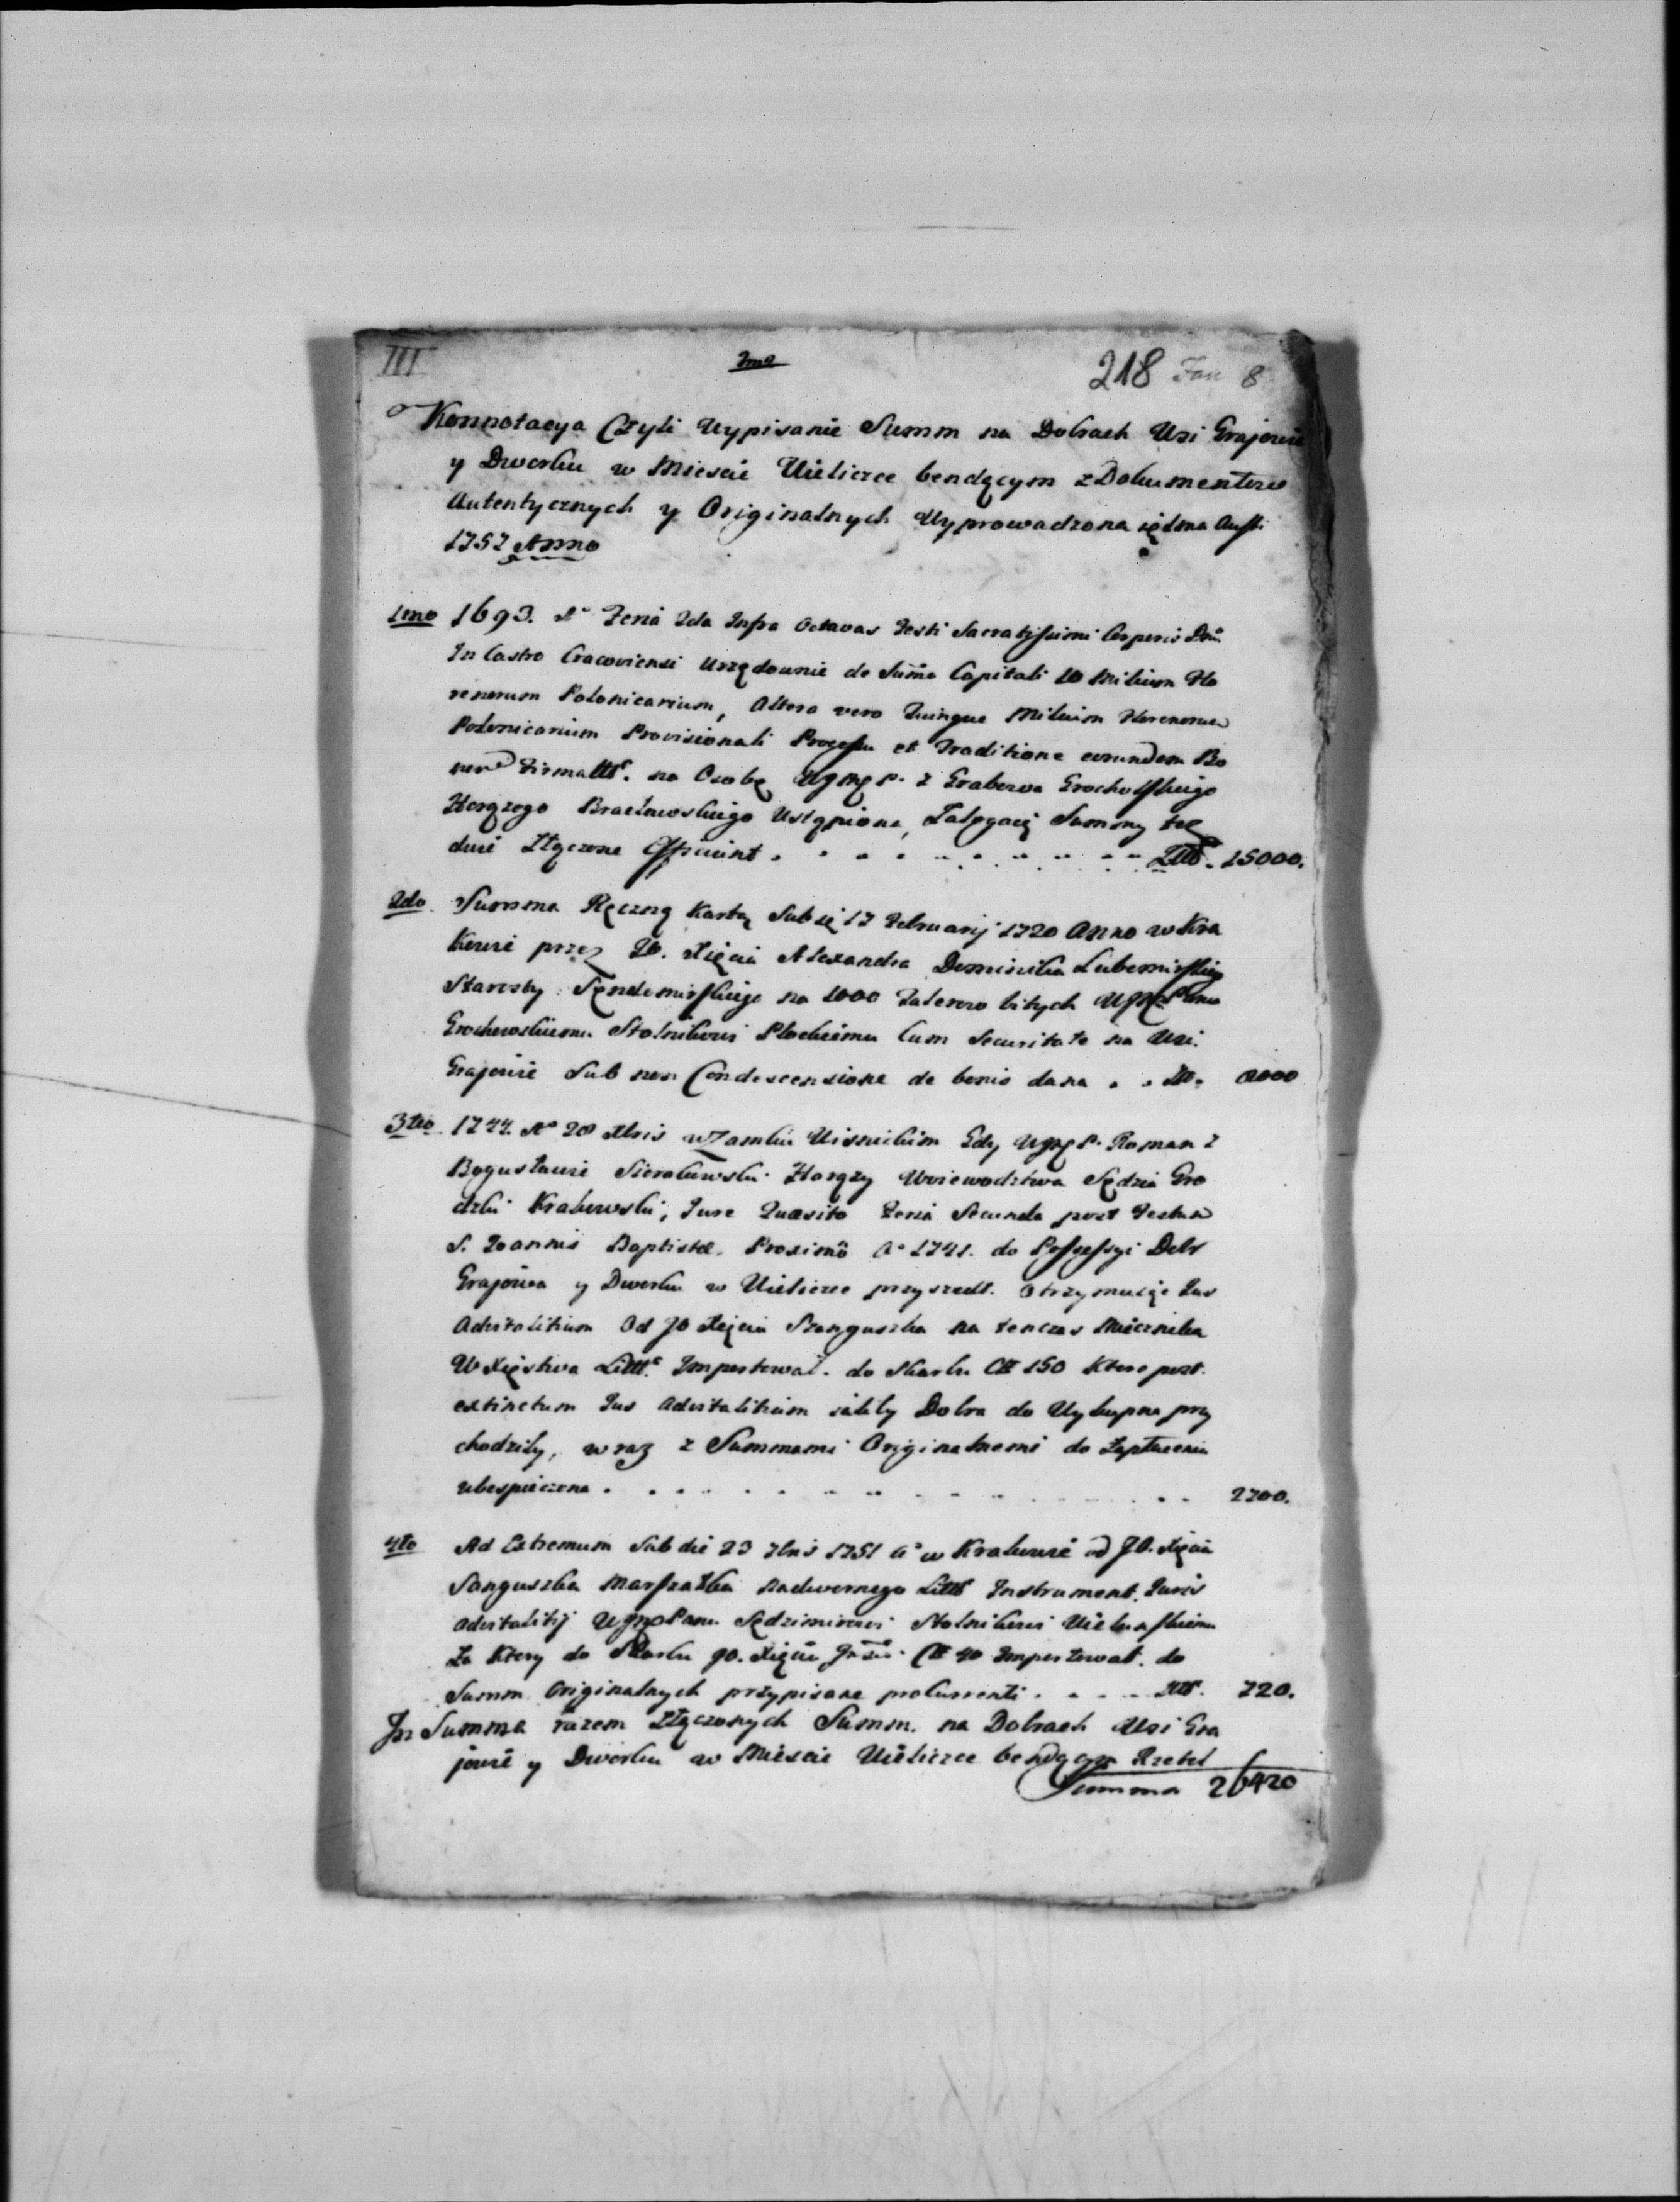 III 2mo 218 Fau 8
Konnotacya Czyli Wypisanie Summ na Dobrach Wsi Grajowie
y Dworku w Miescie Wieliczce bendącym z Dokumentow
Autentycznych y Originalnych Wyprowadzona
1757 Anno
1mo 1693. Ao Feria 2da Infra Octavas Festi Sacratissimi Corporis Dni
In Castro Cracoviensi Urzędownie de Suma Capitali 10 Milium Flo
renorum Polonicarium, Altera vero Quinque Milium Florenorum
Polonicarium Provisionali Processu et Traditione eorundem Bo
nor Firmatt. na Osobę WJmę P. z Grabowa Grochowskiego
Chorążego Bracławskiego Ustąpiona, Summy te
dwie Złączone Efficiunt . . . . . . . . . . Złł. 15000.
2do Summa Ręczną Kartą Sub die 17 Februarij 1720 Anno w Kra
kowie przez JO. Xięcia Alexandra Dominika Lubomirskiego
Starosty Sendomirskiego na 1000 Talerow bitych WJmę Panu
Grochowskiemu Stolnikowi Płockiemu Cum Securitate na Wsi.
Grajowie Sub non Condescensione de bonis dana . . Złł. 8000
3tio 1744. Ao 28 Xbris w Zamku Wisnickim Gdy WJmę P. Roman z
Bogusławic Sierakowski Chorąży Woiewodztwa Sędzia Gro
dzki Krakowski, Jure Quæsito Feria Secunda post Festum
S. Joannis Baptistæ. Proximo Ao 1741. do Possessyi Dobr
Grajowa y Dworku w Wieliczce przyszedł. Otrzymuiąc Jus
Advitalitium Od JO Xięcia Szanguszka na tenczas Miecznika
W Xięstwa Litt. Importował. do Skarbu 150 Ktore post.
extinctum Jus Advitalitium iakby Dobra do Wykupna przy
chodziły, wraz z Summami Originalnemi do Zapłacenia
ubespieczona . . . . . . . . . . 2700.
4to Ad Extremum Sub die 23 7bris 1751 Ao w Krakowie od JO. Xięcia
Sanguszka Marszałka Nadwornego Litt Instrument. Juris
Advitalitij WJmę Panu Sędzimirowi Stolnikowi
Za Ktory do Skarbu JO. Xięcia 40 Importował. do
Summ Originalnych przypisane procurrenti . . . . Złł. 720.
In Summa razem Złączonych Summ. na Dobrach Wsi Gra
jowie y Dworku w Miescie Wieliczce bendącym Rzetel
Summa 26420